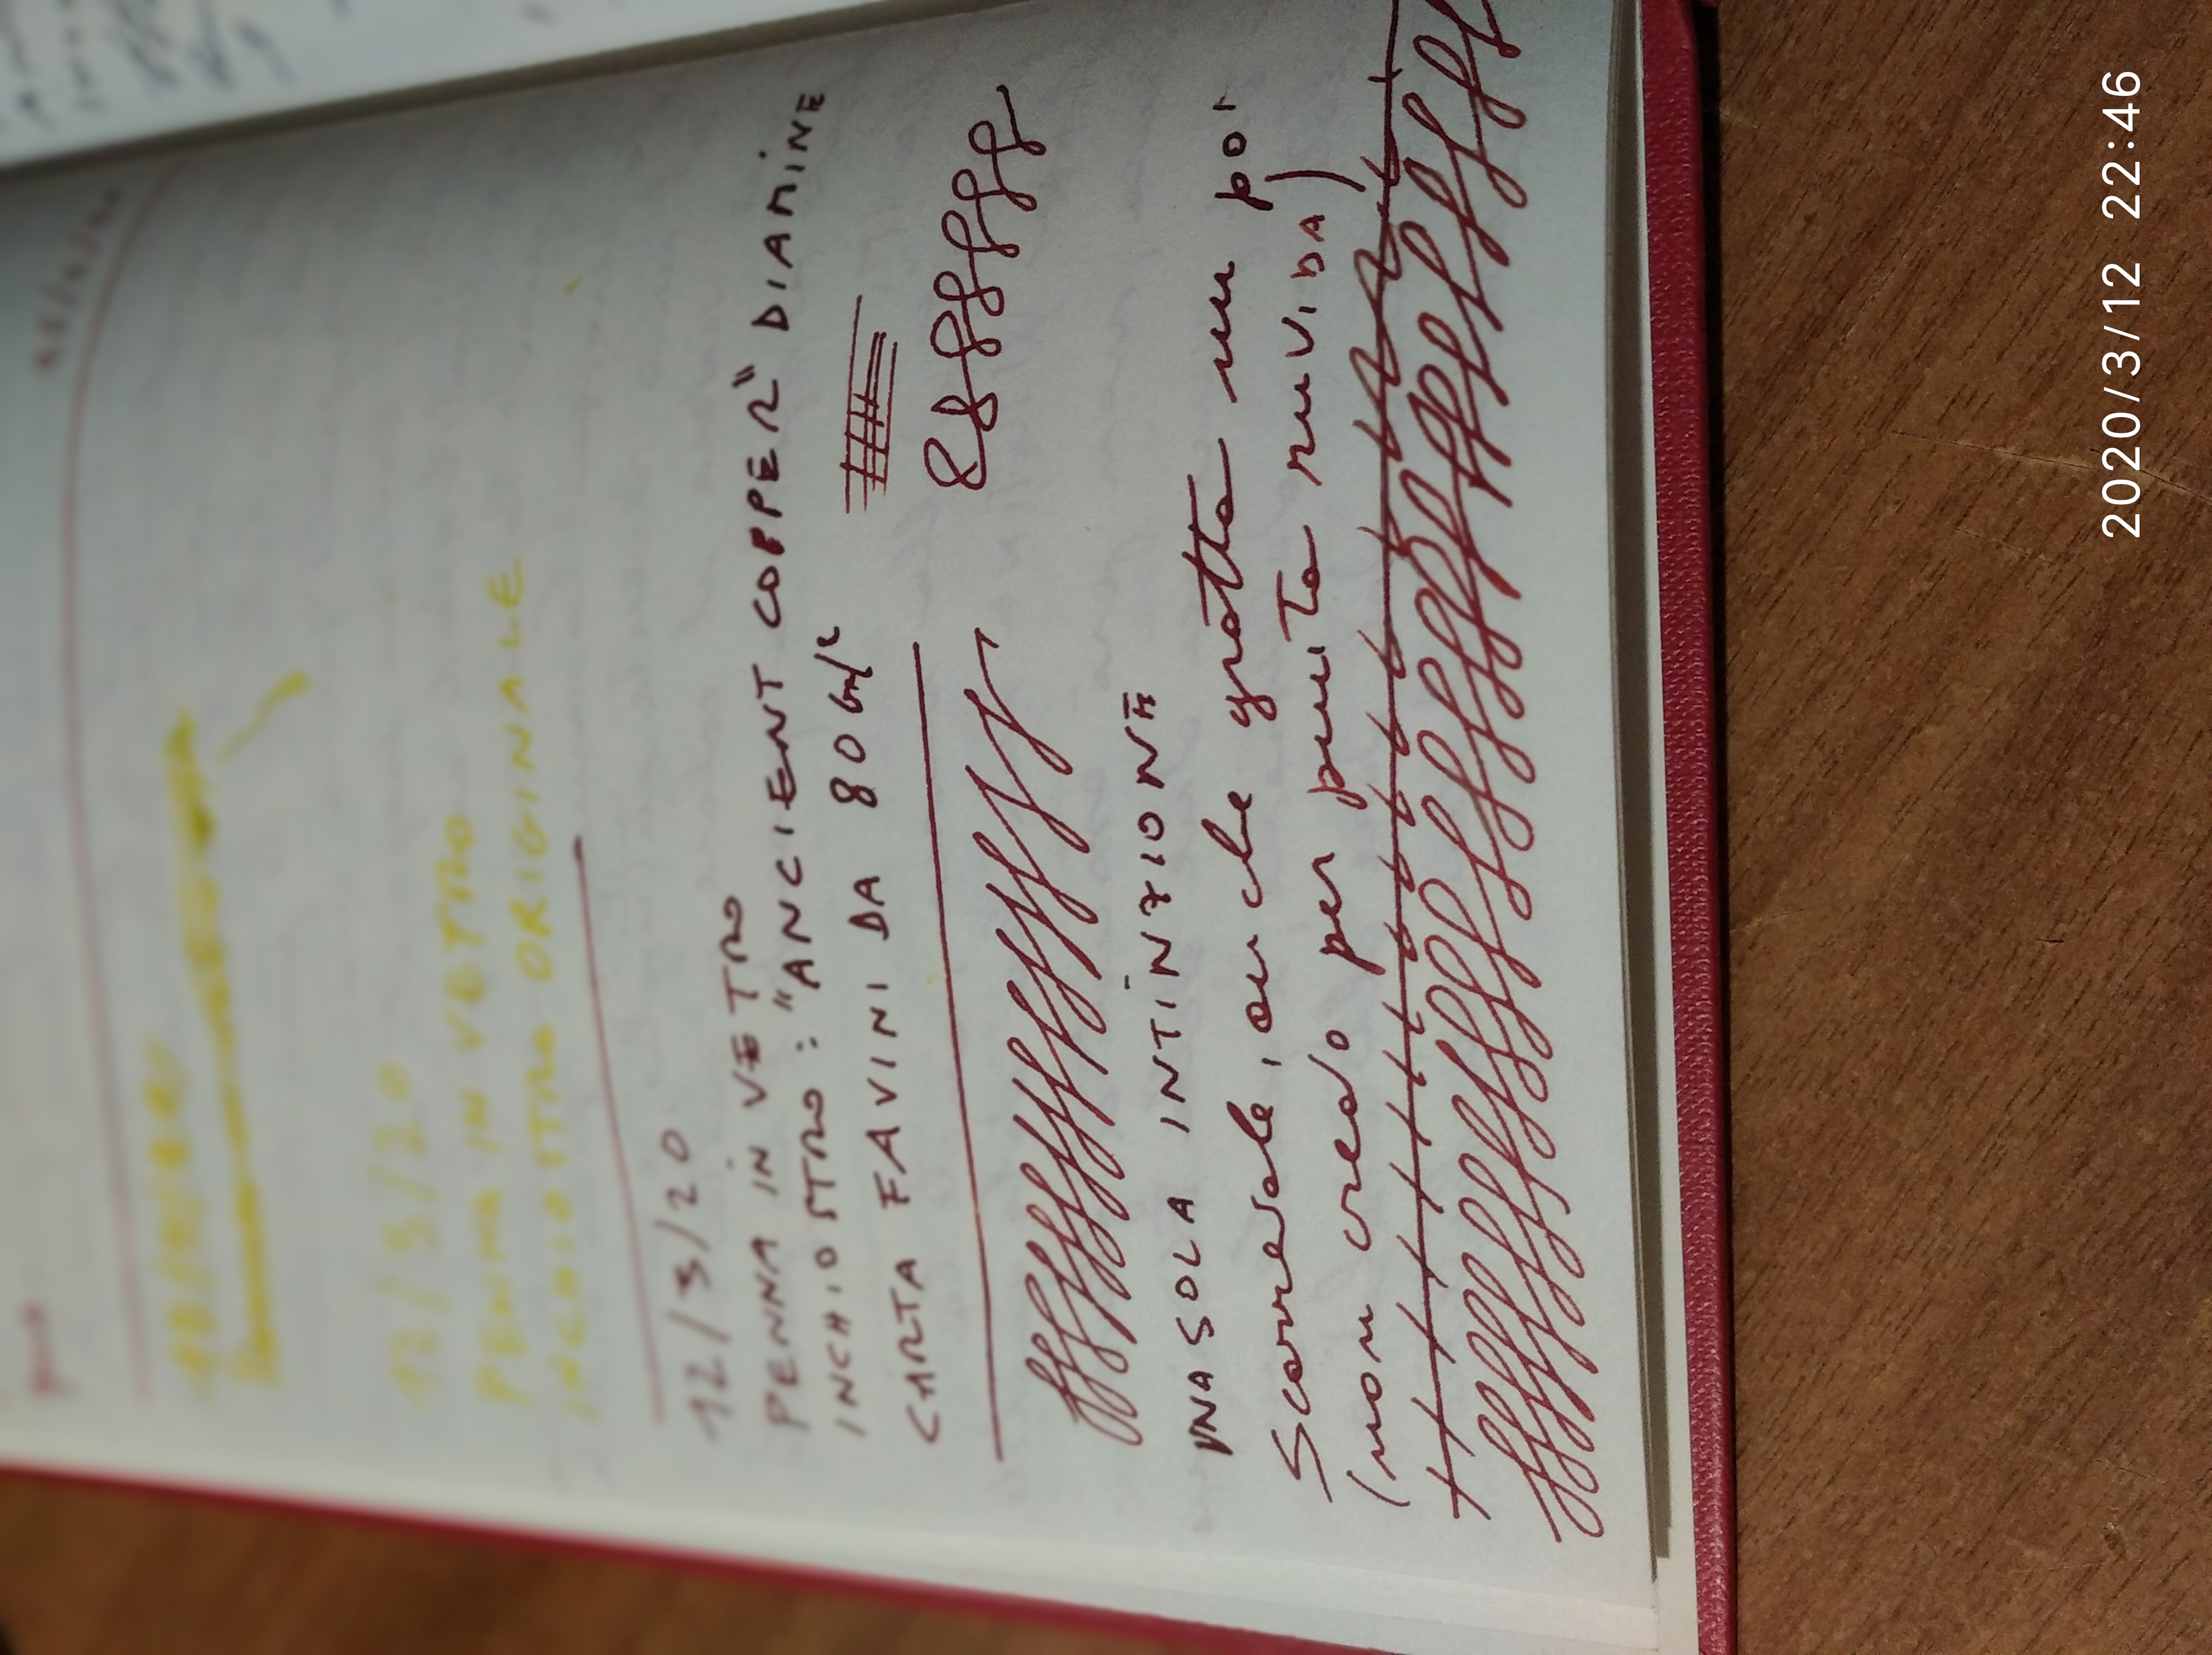 12/3/20
PENNA IN VETRO
INCHIOSTRO ORIGINALE
12/3/20
PENNA IN VETRO
INCHIOSTRO : "ANCIENT COPPER" DIAMINE
CARTA FAVINI DA 80 Gm/2
UNA SOLA INTINZIONE
Scorrevole, anche gratta un po'
(non credo per punta RUVIDA)
2020/3/12 22:46